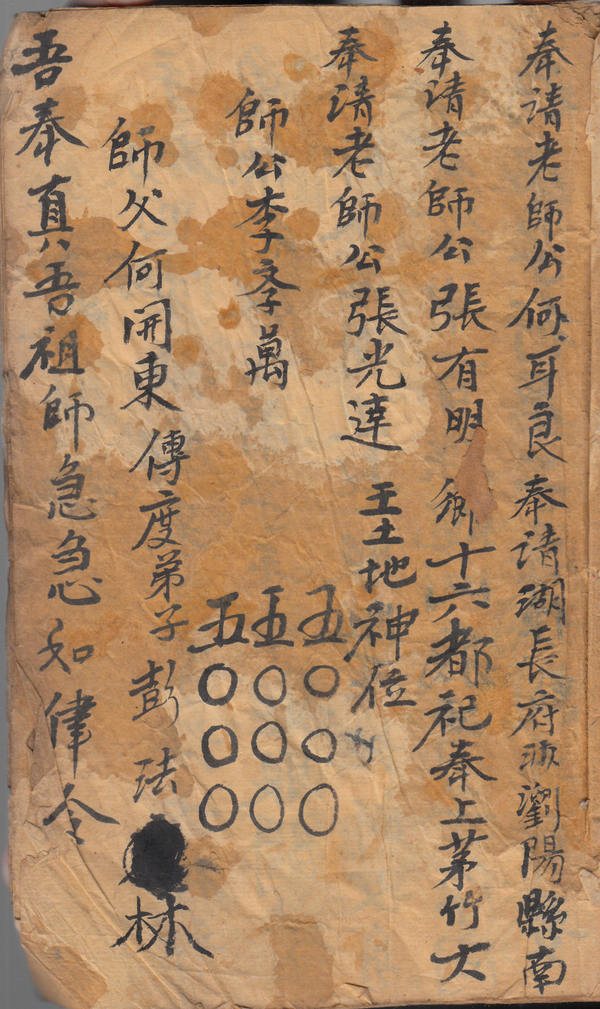 奉請老師公何耳良奉請湖長府瀏陽縣南
奉請老師公張有明鄉十六都祀奉上茅竹大
奉請老師公張光達王土地神位
師公李萬
五五五
〇〇〇
〇〇〇
〇〇〇
師父何開東傳度弟子彭法林
吾奉真吾祖師急急如律令